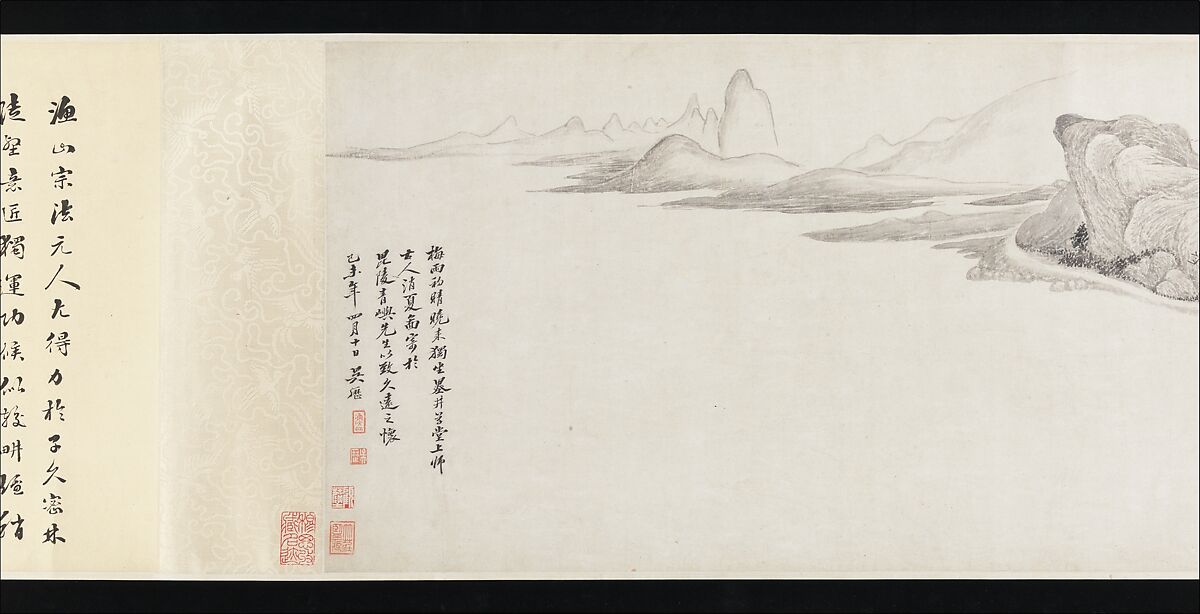 梅雨初晴晚來獨坐墨井草堂上師
古人消夏圖寄於
毘陵青嶼先生以致久遠之懷
己未年四月十日吳歷
漁山宗法元人尤得力於子久密林
陡壑意匠獨運功候似較畊煙稍